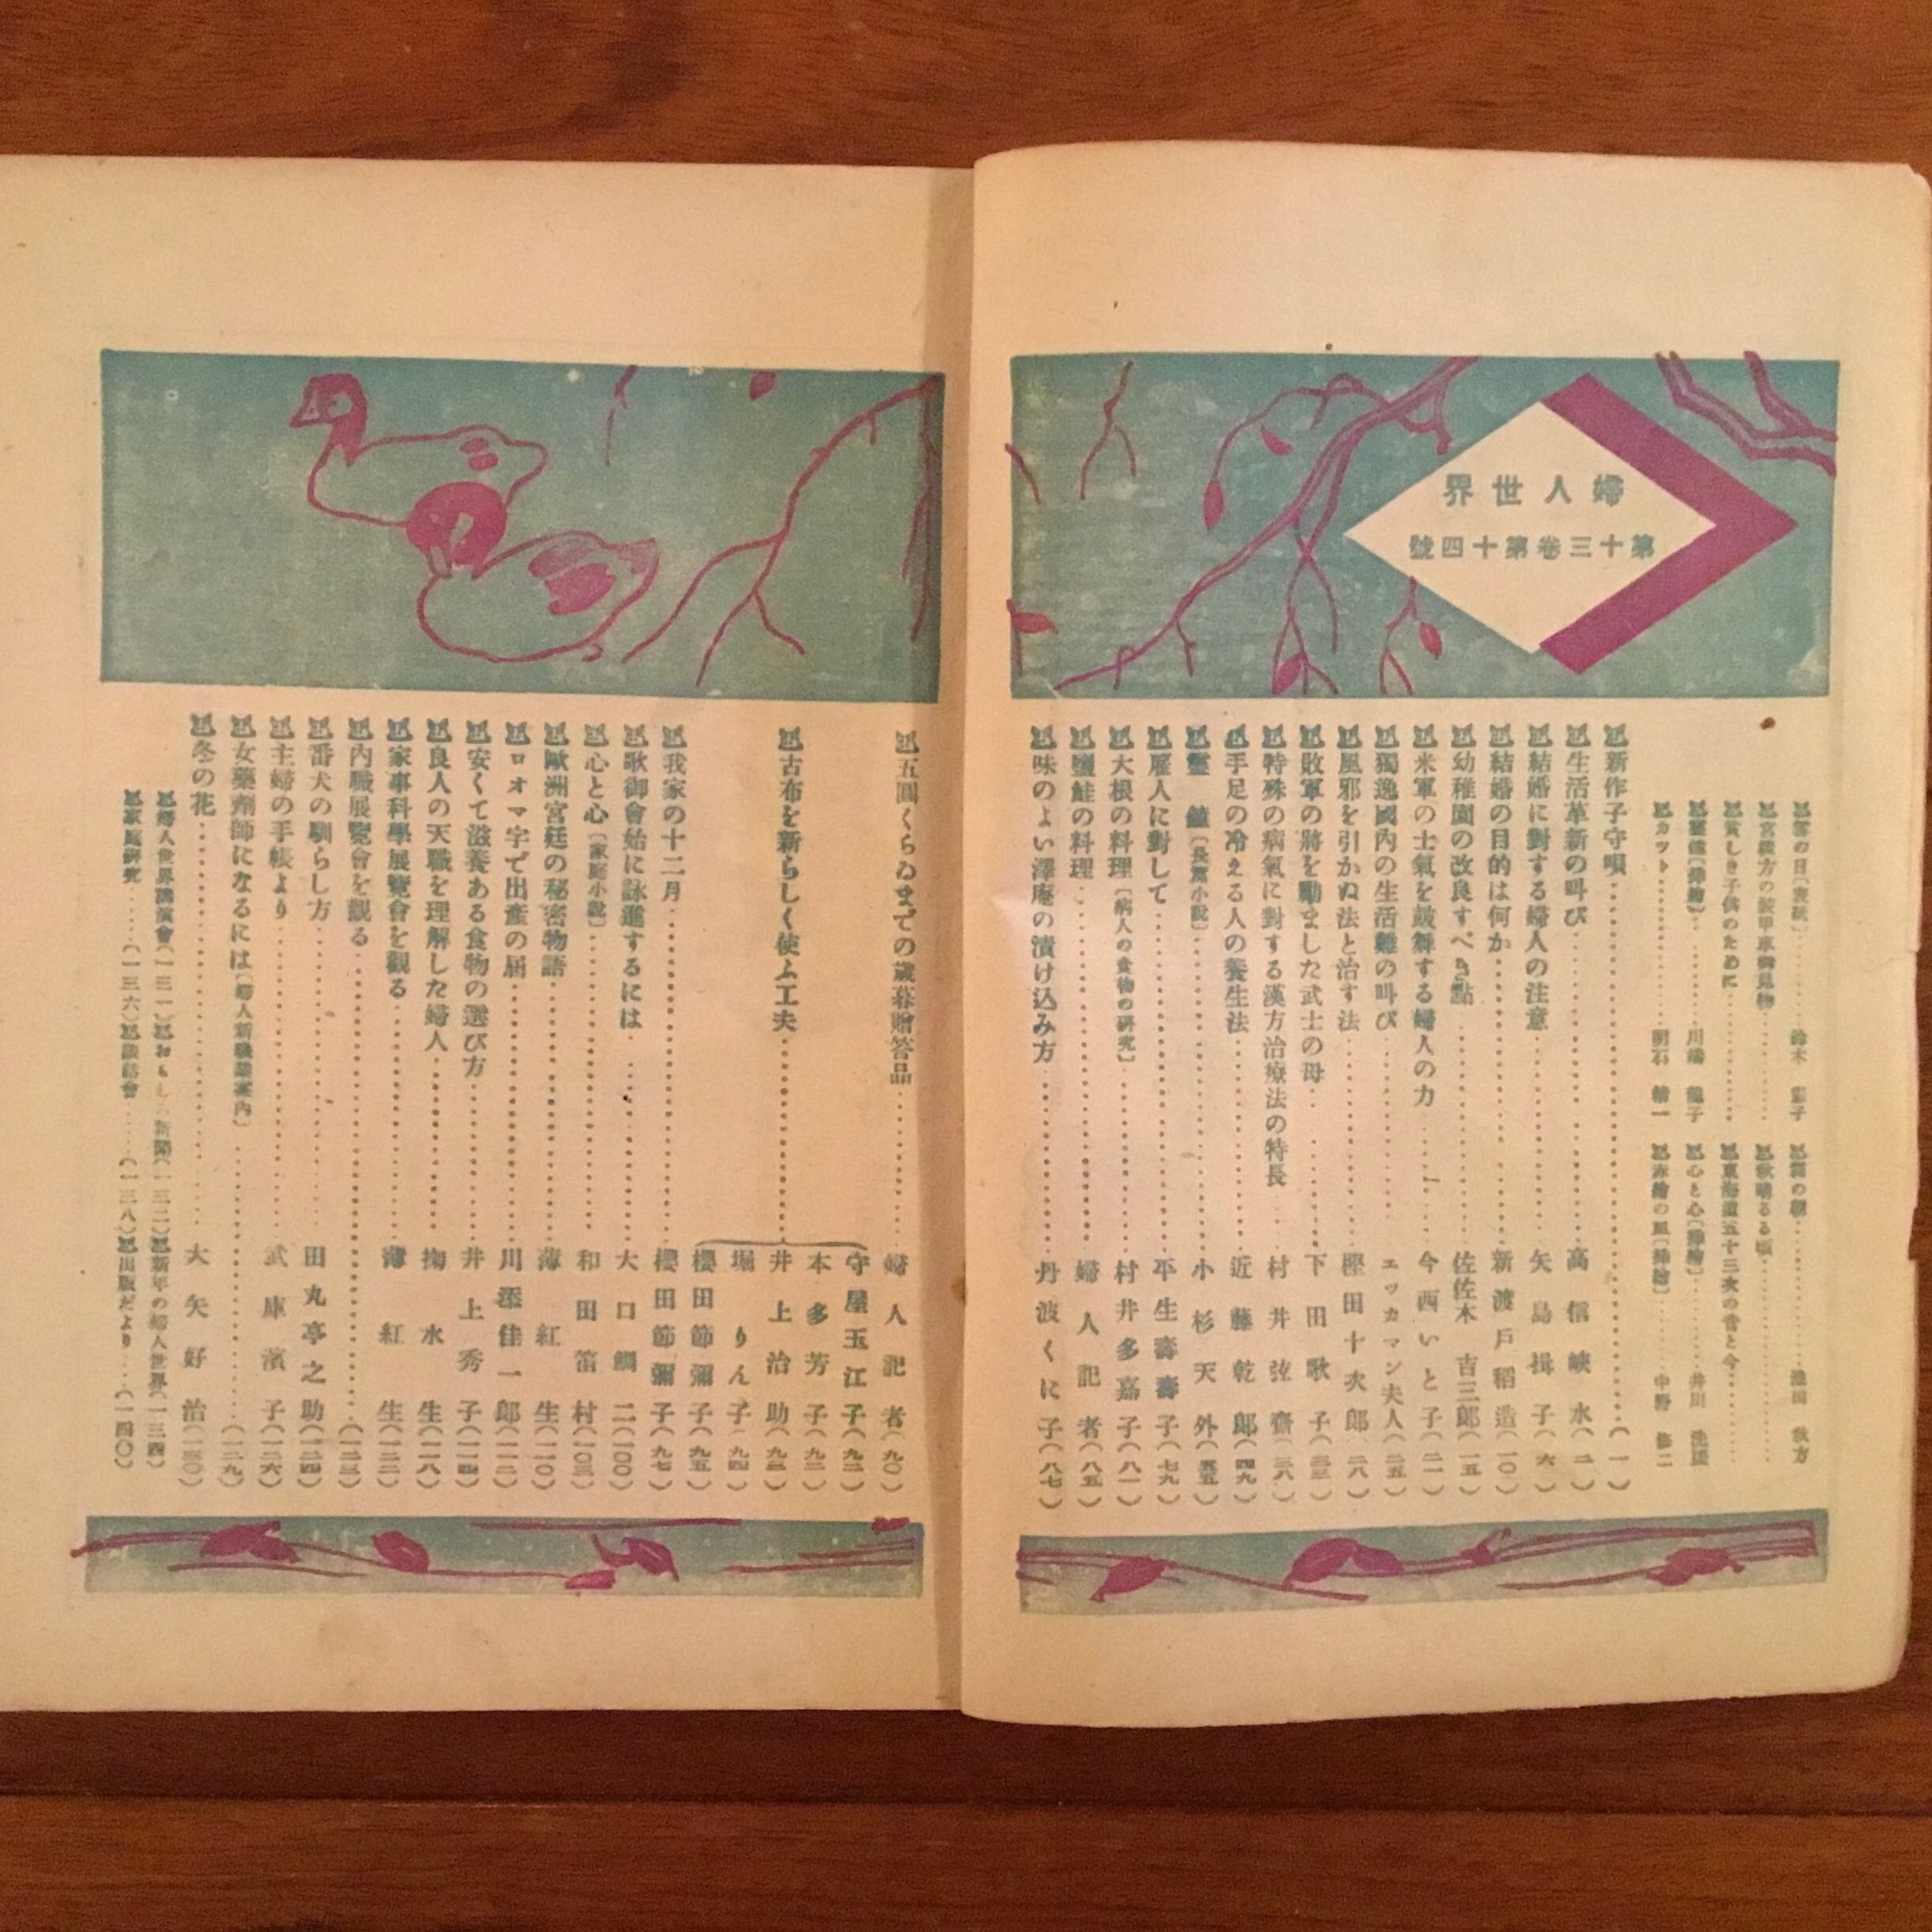 婦人世界
第十三卷第十四號
雪の日〔表紙〕………鈴木
宮殿方の裝甲車御見物………
貧しき子供のために………
靈鐘〔揷繪〕………川端龍子
カット………明石精一
霜の朝………池田
秋晴るる頃………
東海道五十三次の昔と今………
心と心〔揷繪〕………井川洗厓
赤繪の皿〔揷繪〕………中野修二
新作子守唄………(一)
生活革新の叫び………高信峽水(二)
結婚に對する婦人の注意………矢島揖子(六)
結婚の目的は何か………新渡戸稻造(一〇)
幼稚園の改良すべき點………佐佐木吉三郎(一五)
米軍の士氣を鼓舞する婦人の力………今西いと子(二一)
獨逸國內の生活難の叫び………エッカマン夫人(二五)
風邪を引かぬ法と治す法………樫田十次郎(二八)
敗軍の將を勵ました武士の母………下田歌子(三三)
特殊の病氣に對する漢方治療法の特長………村井弦齋(三八)
手足の冷える人の養生法………近藤乾郎(四九)
靈鐘〔長篇小說〕………小杉天外(五五)
雇人に對して………平生壽壽子(七九)
大根の料理〔病人の食物の研究〕………村井多嘉子(八一)
鹽鮭の料理………婦人記者(八五)
味のよい澤庵の漬け込み方………丹波くに子(八七)
五圓くらゐまでの歲暮贈答品………婦人記者(九〇)
古布を新らしく使ふ工夫………
守屋玉江子(九二)
本多芳子(九二)
井上治助(九三)
堀りん子(九四)
櫻田節彌子(九五)
我家の十二月………櫻田節彌子(九七)
歌御會始に詠進するには………大口鯛二(一〇〇)
心と心〔家庭小說〕………和田笛村(一〇三)
歐洲宮廷の秘密物語………薄紅生(一一〇)
ロオマ字で出産の屆………川添佳一郎(一一二)
安くて滋養ある食物の選び方………井上秀子(一一四)
良人の天職を理解した婦人………掬水生(一一八)
家事科學展覽會を觀る………薄紅生(一二二)
內職展覽會を觀る………(一二三)
番犬の馴らし方………田丸亭之助(一二四)
主婦の手帳より………武庫濱子(一二六)
女藥劑師になるには〔婦人新職業案內〕………(一二九)
冬の花………大矢好治(一三〇)
婦人世界講演會(一三一)おもしろ新聞(一三二)新年の婦人世界(一三四)
家庭研究………(一三六)談話會………(一三八)出版だより………(一四〇)